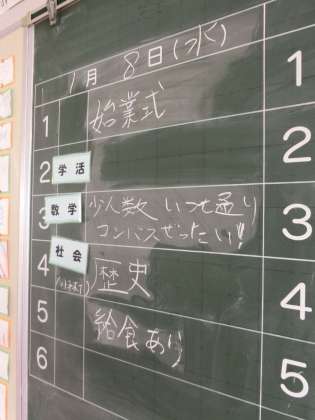 1月8日(水)
1 始業式 1
2 学活 2
3 数学 少人数 いつも通り 3
コンパスぜったい!!
社会
4 歴史 4
5 給食あり
6 5